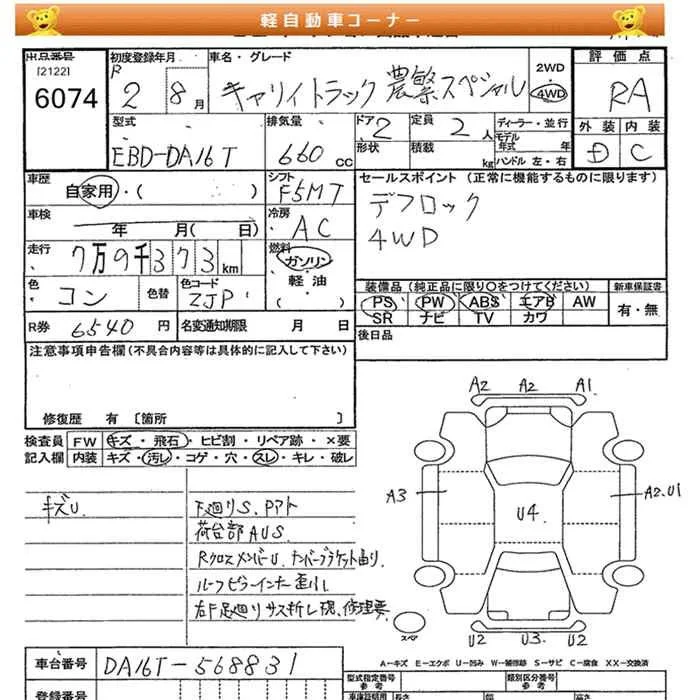 軽自動車コーナー
出品番号 初度登録年月 車名・グレード 2WD 評価点
[2122] R 4WD
6074 2 8月 キャリイトラック 農繁スペシャル RA
型式 排気量 ドア 定員 ディーラー・並行 外装 内装
EBD-DA16T 660cc 2 2人 モデル年式 年 D C
形状 積載 kg ハンドル 左・右
車歴 シフト セールスポイント (正常に機能するものに限ります)
自家用・( ) F5MT デフロック
車検 冷房 4WD
年 月( 日) AC
走行 燃料
7万9千373km ガソリン
色 色替 色コード 軽油 装備品 (純正品に限り○をつけてください) 新車保証書
コン ZJP ( ) PS PW ABS エアB AW 有・無
R券 6540円 名変通知期限 月 日 SR ナビ TV カワ
注意事項申告欄 (不具合内容等は具体的に記入して下さい) 後日品
修復歴 有 〔箇所 〕
検査員 FW キズ・飛石・ヒビ割・リペア跡・×要
記入欄 内装 キズ・汚レ・コゲ・穴・スレ・キレ・破レ
A2 A2 A1
キズU 下廻りS、Pアト
荷台部AUS
RクロスメンバーU ナンバーブラケット曲り
ルーフピラーインナー歪小
左F足廻り サス折レ 現、修理要
A3 U4. A2.U1
スペア
U2 U3 U2
A-キズ E-エクボ U-凹み W-補修跡 S-サビ C-腐食 XX-交換済
車台番号 DA16T-568831
登録番号
型式指定番号 参考 類別区分番号 参考
車庫証明用 長さ 幅 高さ